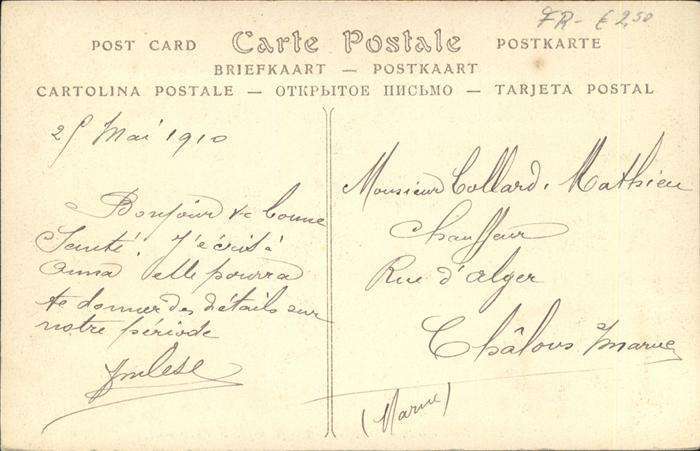 FR - € 2,50
POST CARD Carte Postale POSTKARTE
BRIEFKAART — POSTKAART
CARTOLINA POSTALE — ОТКРЫТОЕ ПИСЬМО — TARJETA POSTAL
25 Mai 1910
Bonjour & bonne
Santé! J'écris à
Anna elle pourra
te donner des détails sur
notre période
Monsieur Collard. Mathieu
Chauffeur
Rue d'Alger
Châlons s/ Marne
(Marne)